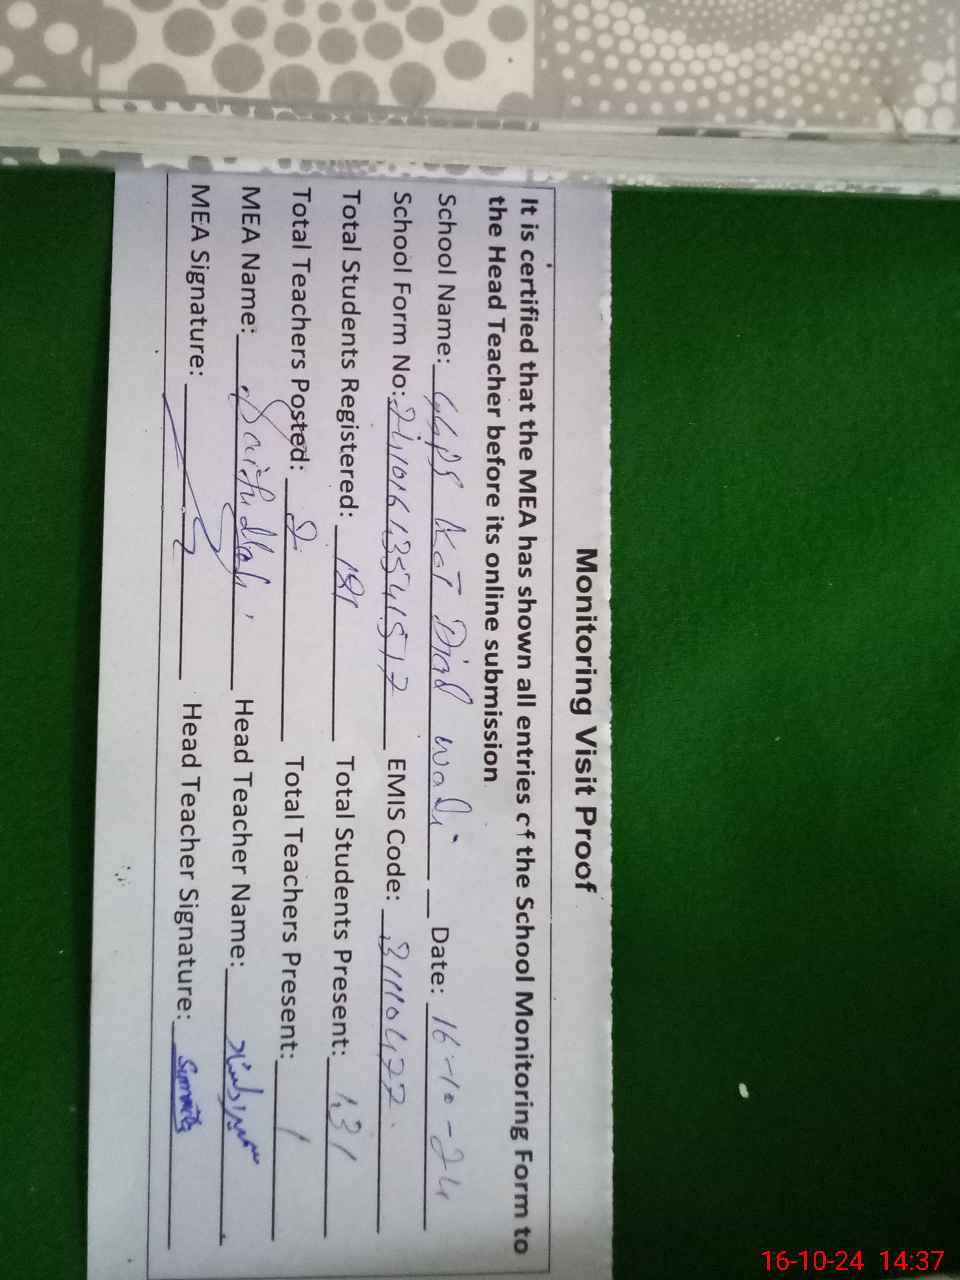 Monitoring Visit Proof
It is certified that the MEA has shown all entries of the School Monitoring Form to
the Head Teacher before its online submission
School Name: GGPS Kot Diad wali Date: 16-10-24
School Form No: EMIS Code: 31110477
Total Students Registered: 181 Total Students Present: 131
Total Teachers Posted: 2 Total Teachers Present: 1
MEA Name: Head Teacher Name:
MEA Signature: Head Teacher Signature:
16-10-24 14:37